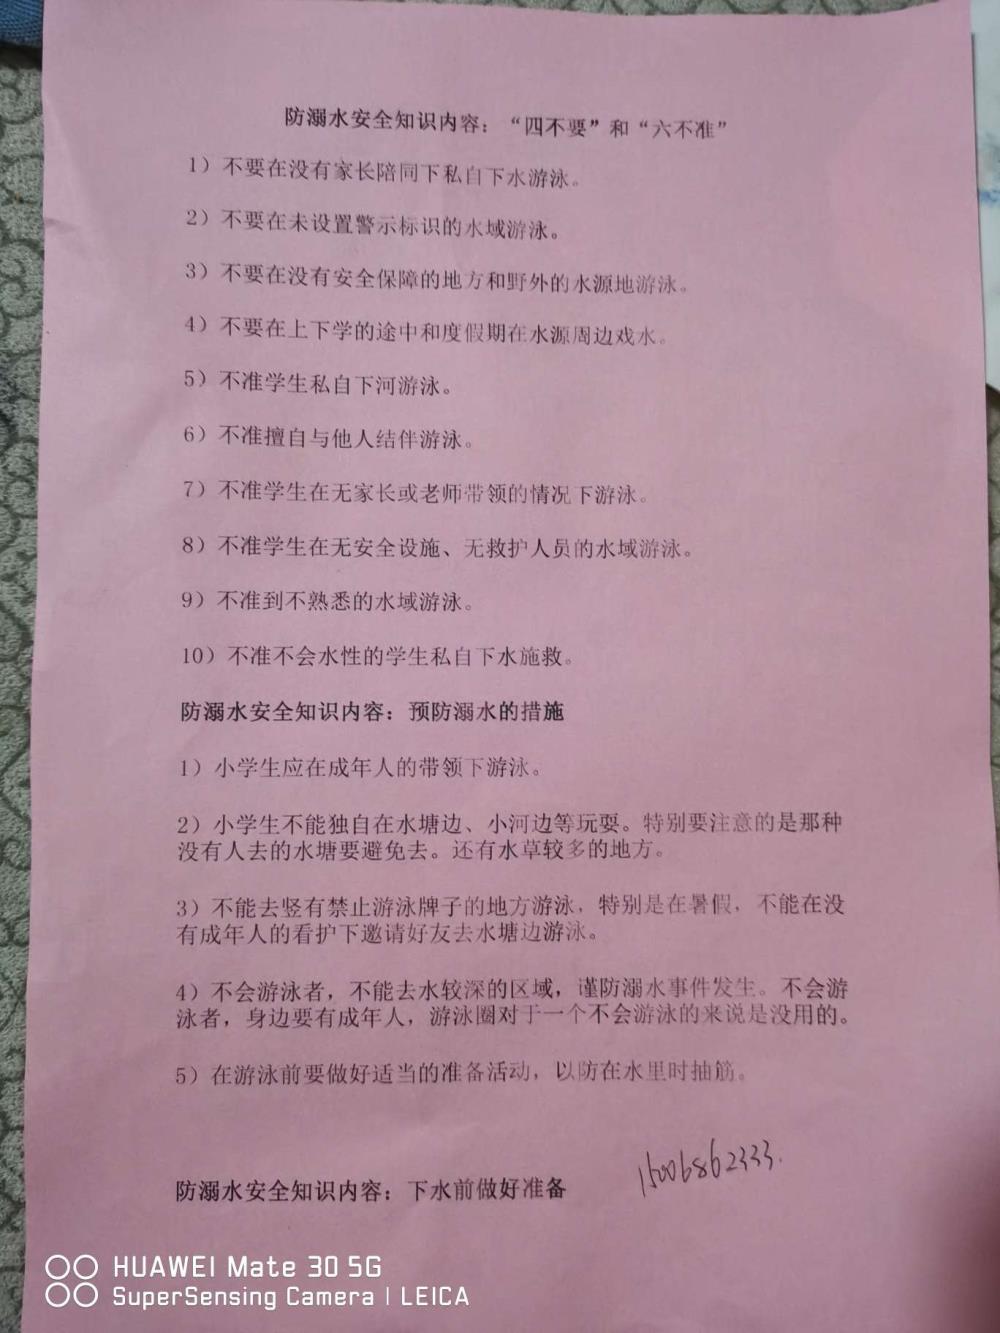 防溺水安全知识内容：“四不要”和“六不准”
1）不要在没有家长陪同下私自下水游泳。
2）不要在未设置警示标识的水域游泳。
3）不要在没有安全保障的地方和野外的水源地游泳。
4）不要在上下学的途中和度假期在水源周边戏水。
5）不准学生私自下河游泳。
6）不准擅自与他人结伴游泳。
7）不准学生在无家长或老师带领的情况下游泳。
8）不准学生在无安全设施、无救护人员的水域游泳。
9）不准到不熟悉的水域游泳。
10）不准不会水性的学生私自下水施救。
防溺水安全知识内容：预防溺水的措施
1）小学生应在成年人的带领下游泳。
2）小学生不能独自在水塘边、小河边等玩耍。特别要注意的是那种
没有人去的水塘要避免去。还有水草较多的地方。
3）不能去竖有禁止游泳牌子的地方游泳，特别是在暑假，不能在没
有成年人的看护下邀请好友去水塘边游泳。
4）不会游泳者，不能去水较深的区域，谨防溺水事件发生。不会游
泳者，身边要有成年人，游泳圈对于一个不会游泳的来说是没用的。
5）在游泳前要做好适当的准备活动，以防在水里时抽筋。
15006862333.
防溺水安全知识内容：下水前做好准备
HUAWEI Mate 30 5G
SuperSensing Camera | LEICA